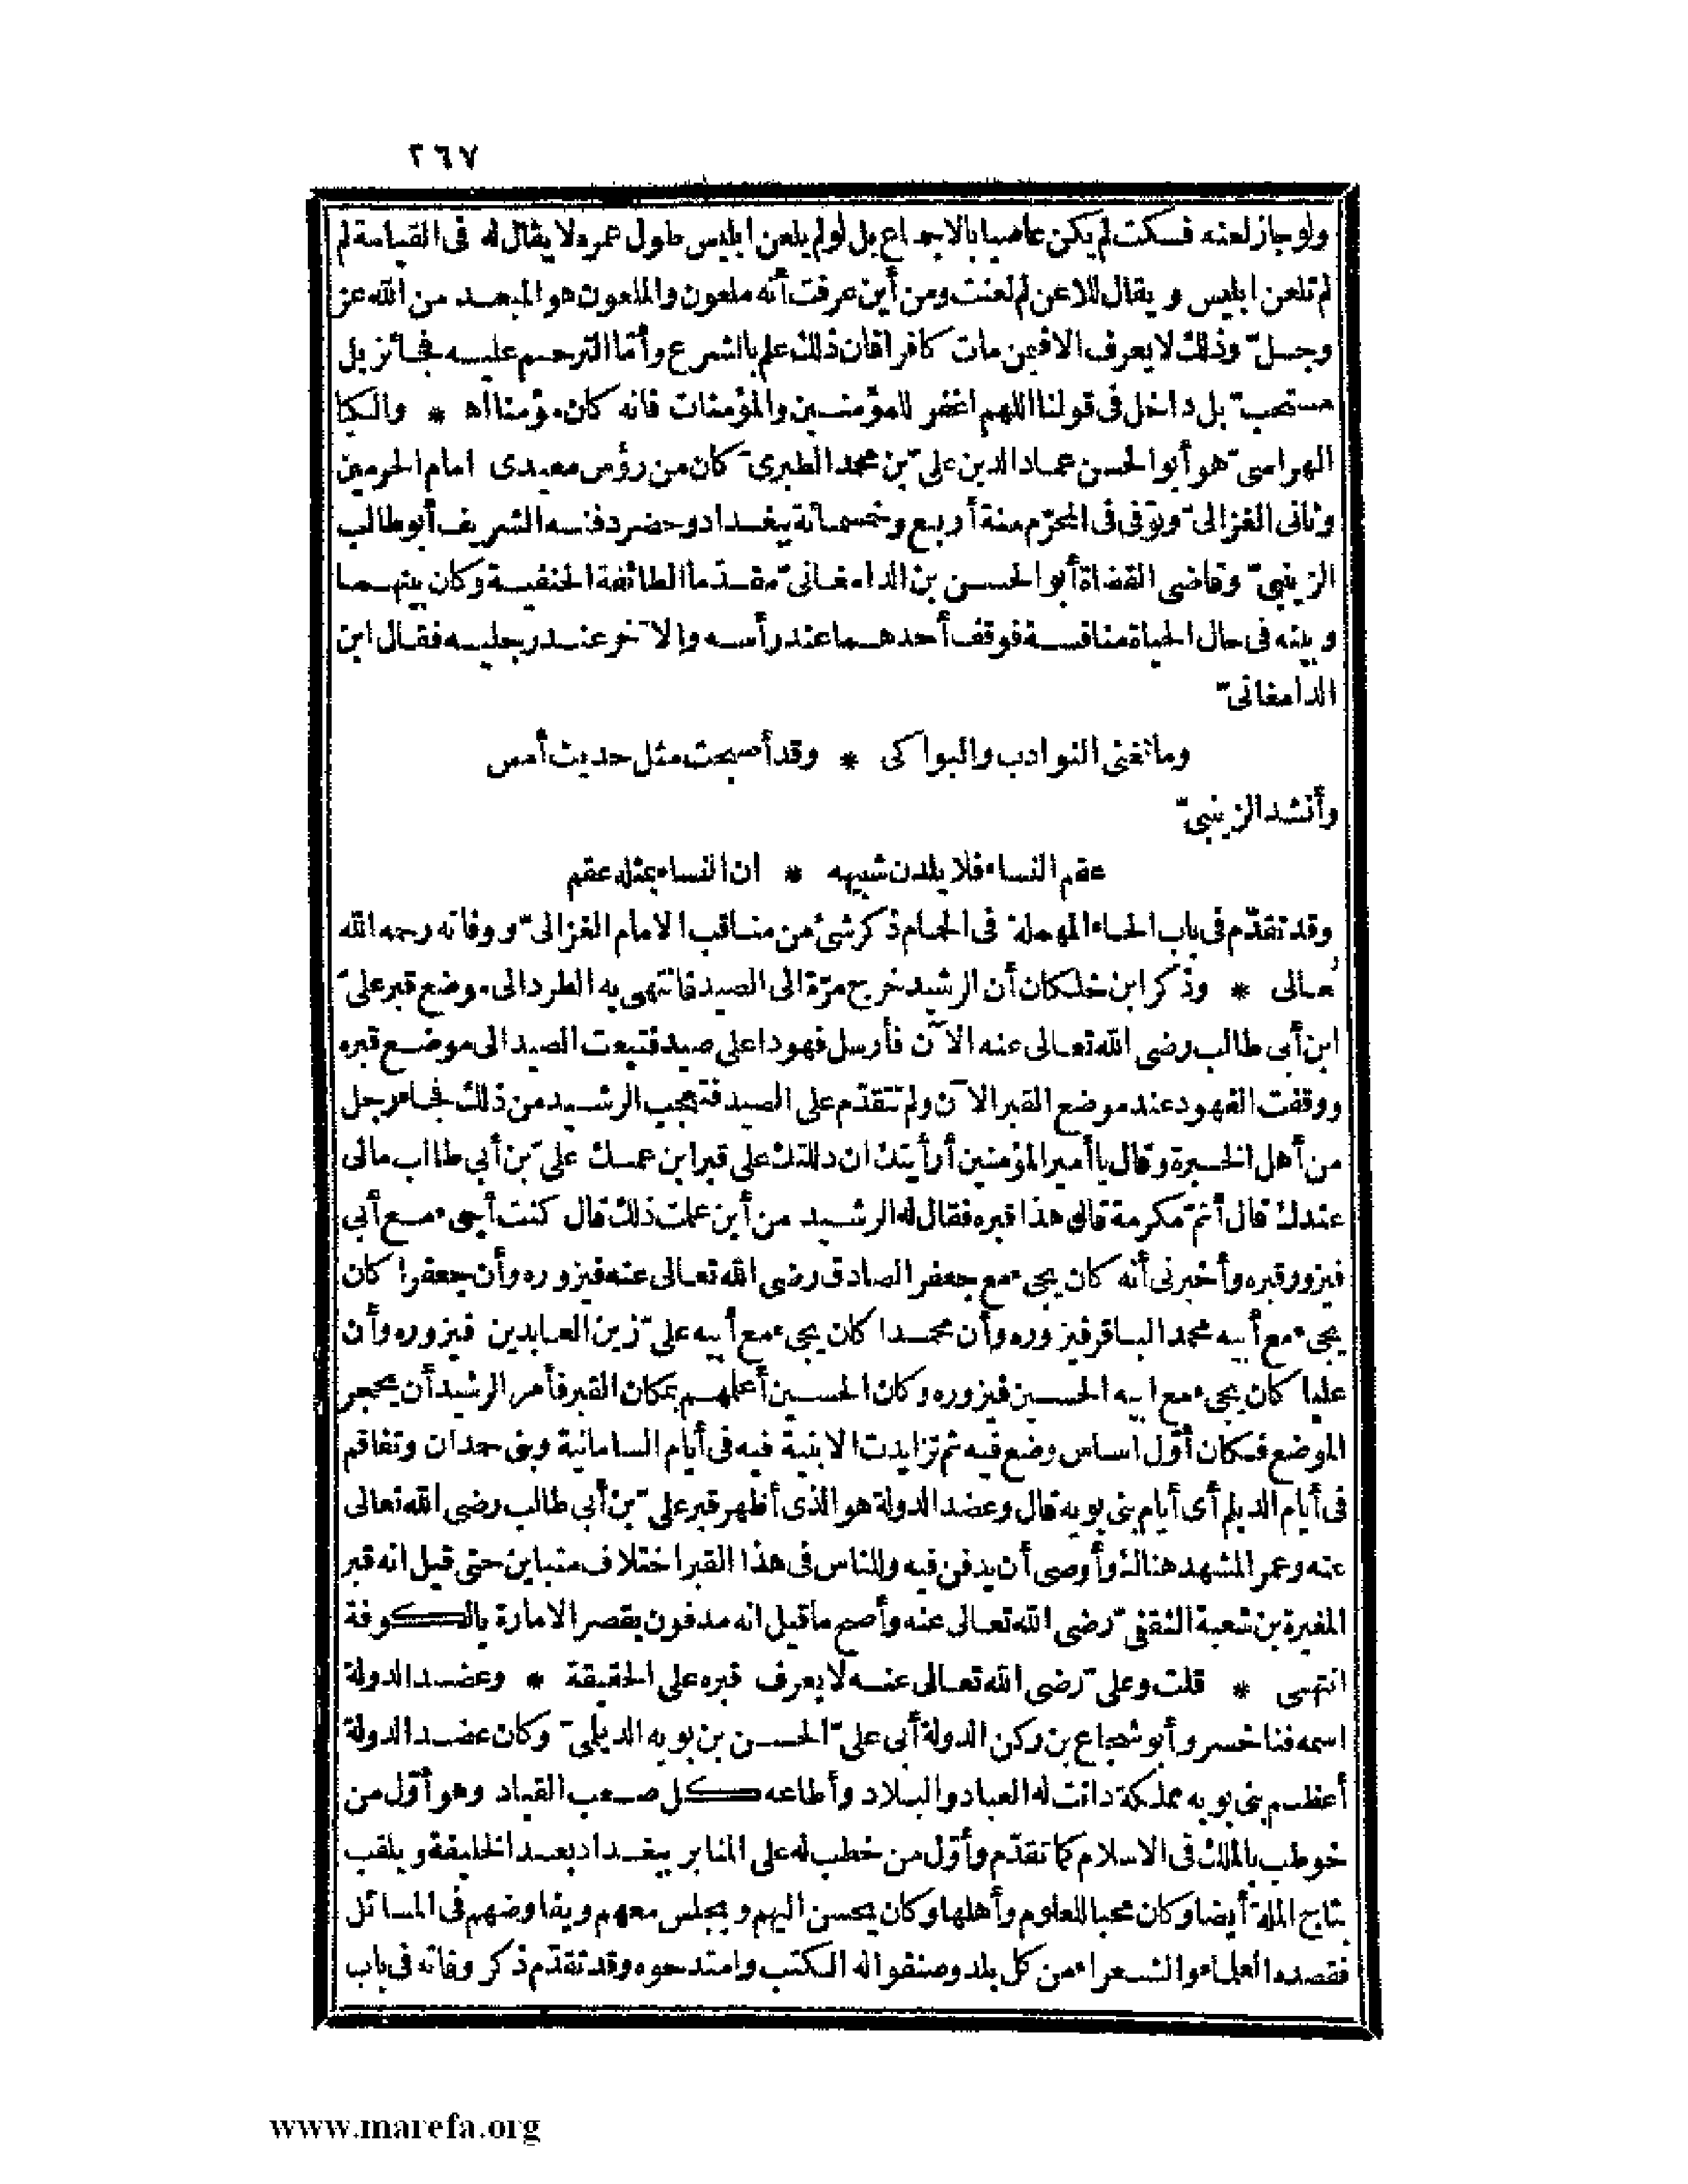 ٢٦٧
ولو جاز لعنه فسكت لم يكن عاصيا بالاجماع بل لو لم يلعن ابليس طول عمره لا يقال له فى القيامة لم
لم تلعن ابليس و يقال للاعن لم لعنت ومن أين عرفت أنه ملعون والملعون هو المبعد من الله عز
وجلّ وذلك لا يعرف الا فيمن مات كافرا فان ذلك علم بالشرع وأمّا الترحم عليه فجائز بل
مستحبّ بل داخل فى قولنا اللهم اغفر للمؤمنين والمؤمنات فانه كان مؤمنا اه * والكا
الهراسىّ هو أبو الحسن عماد الدين علىّ بن محمد الطبرىّ كان من رؤس معيدى امام الحرمين
وثانى الغزالىّ وتوفى فى المحرّم سنة أربع وخمسمائة ببغداد وحضر دفنه الشريف أبو طالب
الزينبىّ وقاضى القضاة أبو الحسن بن الدامغانىّ مقدّما الطائفة الحنفية وكان بينهما
وبينه فى حال الحياة منافسة فوقف أحدهما عند رأسه والآخر عند رجليه فقال ابن
الدامغانىّ
وما تغنى النوادب والبواكى * وقد أصبحت مثل حديث أمس
وأنشد الزينبىّ
عقم النساء فلا يلدن شبيهه * ان النساء بمثله عقم
وقد تقدّم فى باب الحاء المهملة فى الحمام ذكر شئ من مناقب الامام الغزالىّ ووفاته رحمه الله
تعالى * وذكر ابن خلكان أن الرشيد خرج مرّة الى الصيد فانتهى به الطرد الى موضع قبر علىّ
ابن أبى طالب رضى الله تعالى عنه الآن فأرسل فهودا على صيد فتبعت الصيد الى موضع قبره
ووقفت الفهود عند موضع القبر الآن ولم تتقدّم على الصيد فتعجب الرشيد من ذلك فجاءه رجل
من أهل الخبرة وقال يا أمير المؤمنين أرأيتك ان دللتك على قبر ابن عمك علىّ بن أبى طالب مالى
عندك قال أتمّ مكرمة قال هذا قبره فقال له الرشيد من أين علمت ذلك قال كنت أجىء مع أبى
فيزور قبره وأخبرنى أنه كان يجىء مع جعفر الصادق رضى الله تعالى عنه فيزوره وأن جعفرا كان
يجىء مع أبيه محمد الباقر فيزوره وأن محمدا كان يجىء مع أبيه علىّ زين العابدين فيزوره وأن
عليا كان يجىء مع ابيه الحسين فيزوره وكان الحسين أعلمهم بمكان القبر فأمر الرشيد أن يحجر
الموضع فكان أوّل اساس وضع فيه ثم تزايدت الابنية فيه فى أيام السامانية وبنى حمدان وتفاقم
فى أيام الديلم أى أيام بنى بويه قال وعضد الدولة هو الذى أظهر قبر علىّ بن أبى طالب رضى الله تعالى
عنه وعمر المشهد هناك وأوصى أن يدفن فيه وللناس فى هذا القبر اختلاف متباين حتى قيل انه قبر
المغيرة بن شعبة الثقفىّ رضى الله تعالى عنه وأصح ما قيل انه مدفون بقصر الامارة بالكوفة
انتهى * قلت وعلىّ رضى الله تعالى عنه لا يعرف قبره على الحقيقة * وعضد الدولة
اسمه فناخسرو أبو شجاع بن ركن الدولة أبى علىّ الحسن بن بويه الديلمىّ وكان عضد الدولة
أعظم بنى بويه مملكة دانت له العباد والبلاد وأطاعه كل صعب القياد وهو أوّل من
خوطب بالملك فى الاسلام كما تقدّم وأوّل من خطب له على المنابر ببغداد بعد الخليفة ويلقب
بتاج الملة أيضا وكان محبا للعلوم وأهلها وكان يحسن اليهم ويجلس معهم ويفاوضهم فى المسائل
فقصده العلماء والشعراء من كل بلد وصنفوا له الكتب وامتدحوه وقد تقدّم ذكر وفاته فى باب
www.marefa.org